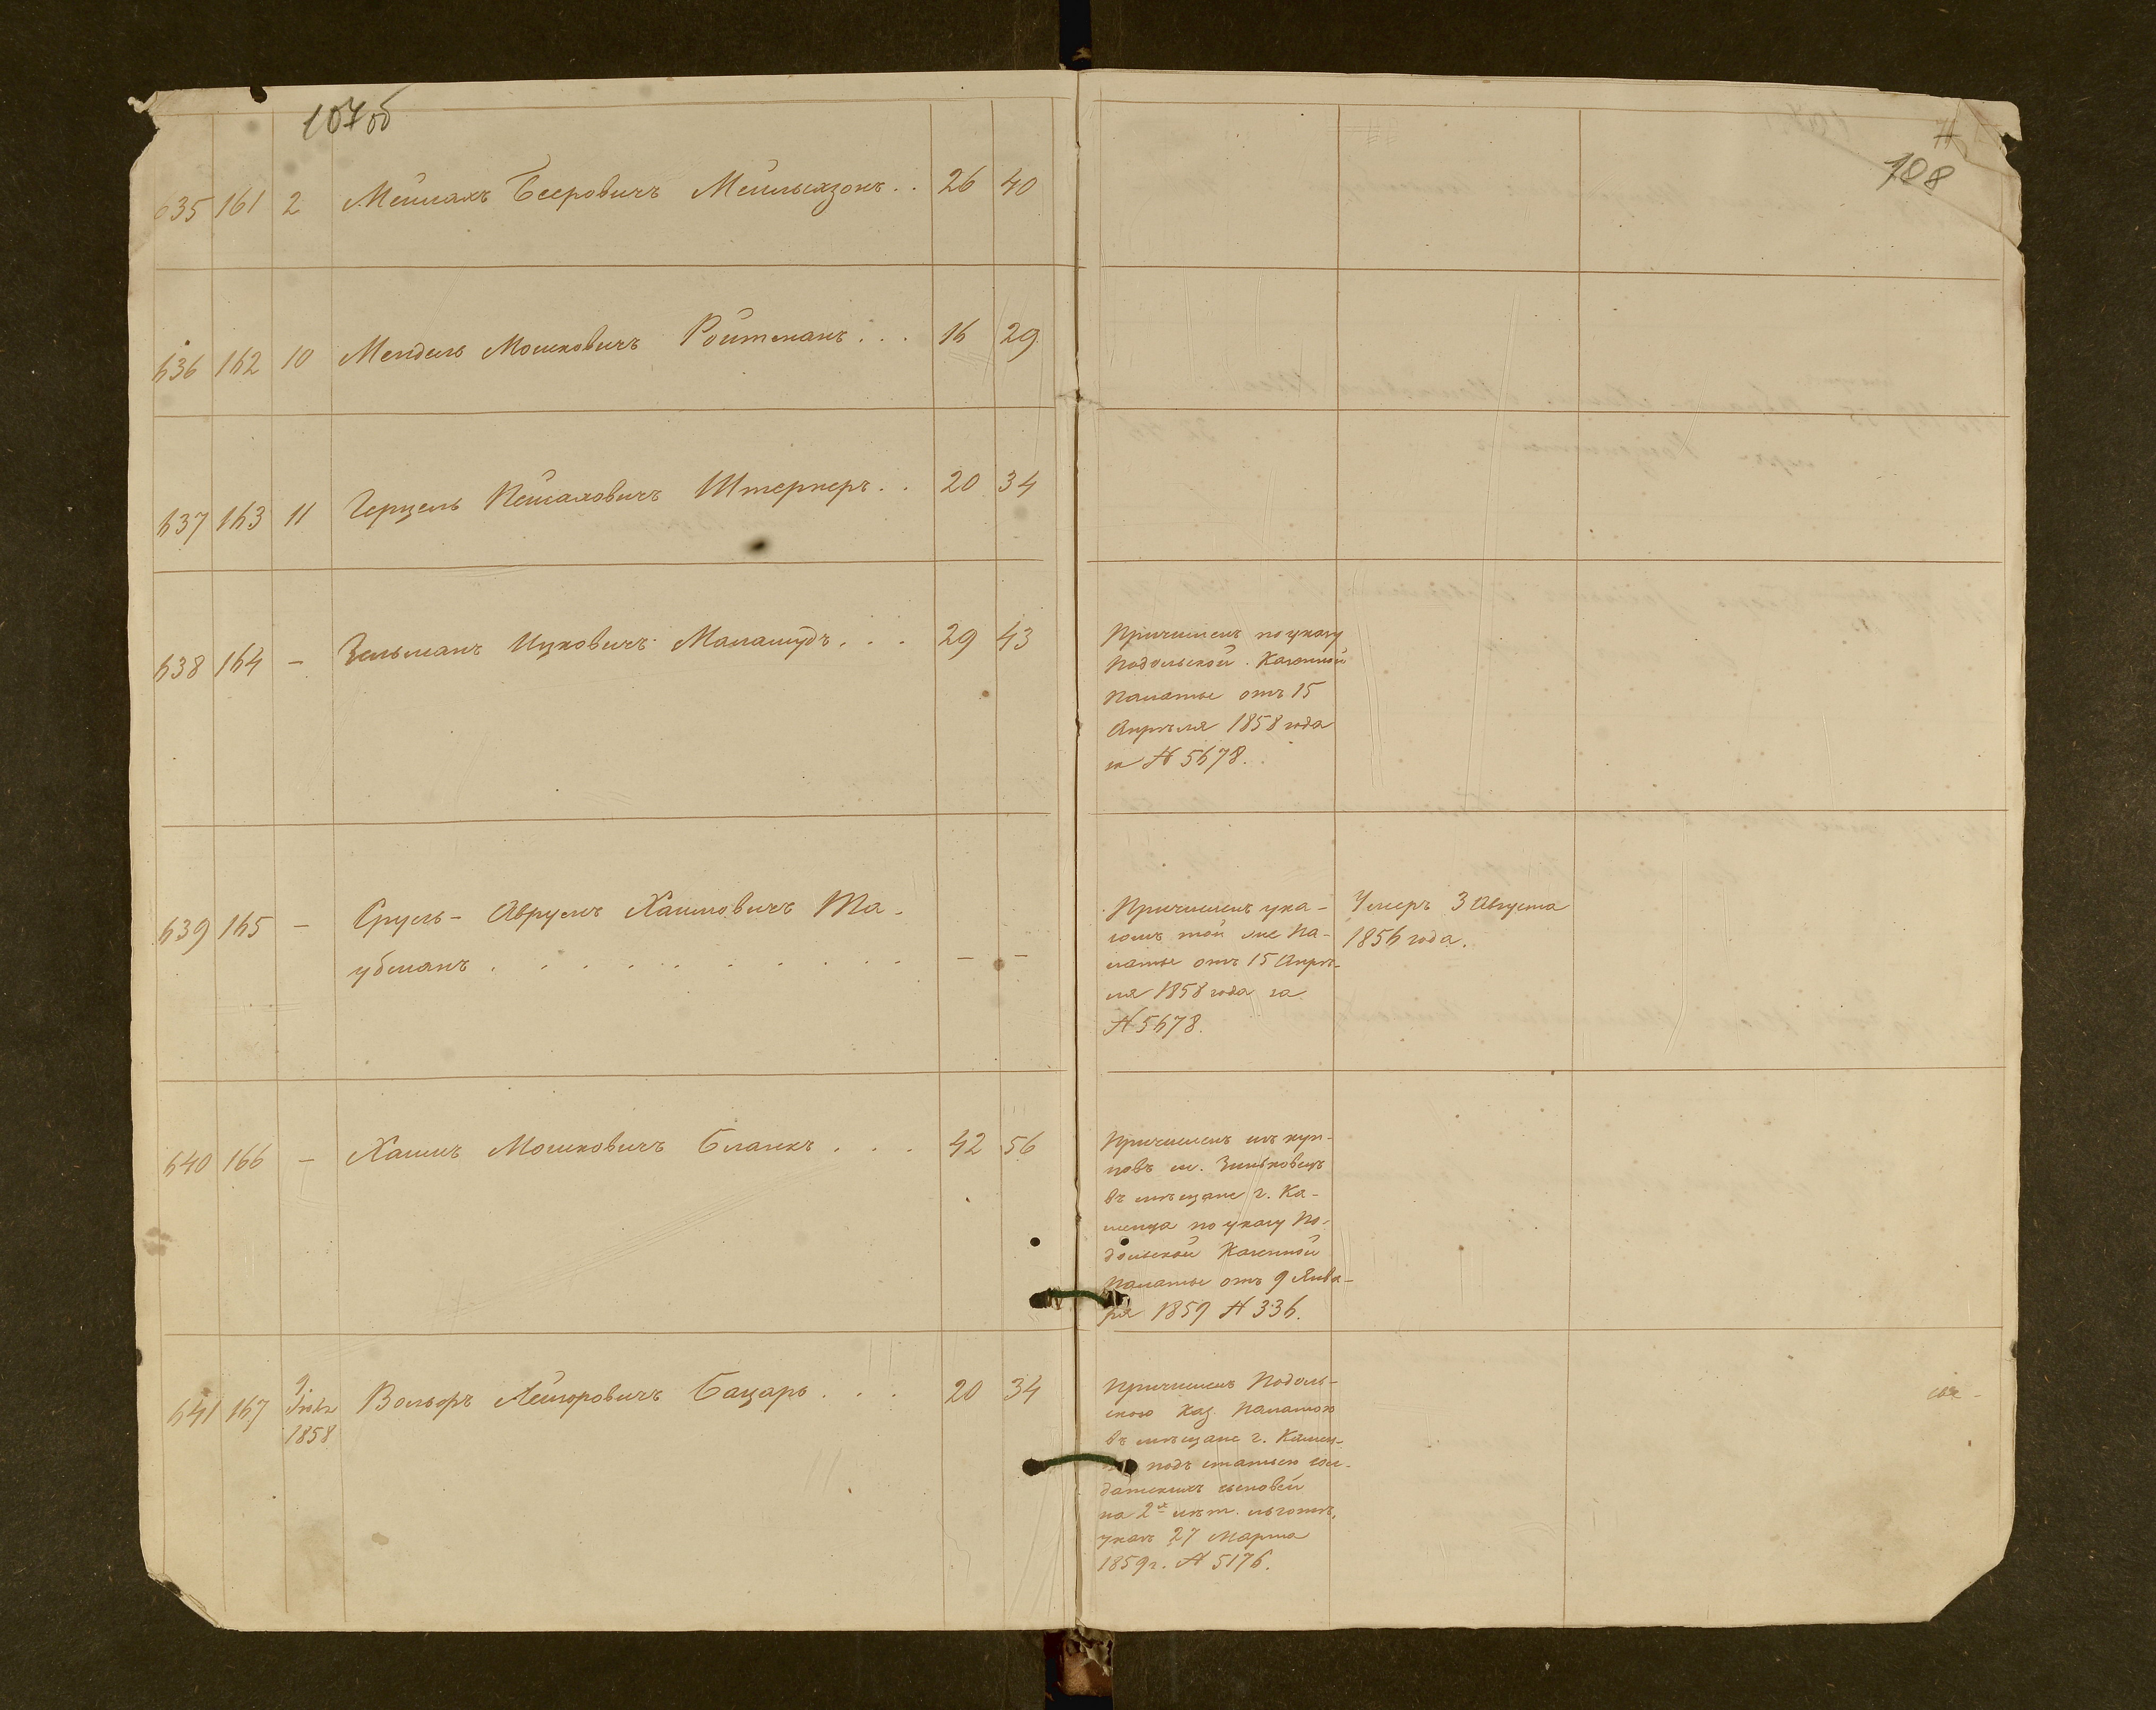 107об
108
635 161 2 Мейлахъ Бееровичъ Мейльихзонъ . . 26 40
636 162 10 Мендель Мошковичъ Ройтманъ . . . 16 29
637 163 11 Герцель Пейсаховичъ Штернеръ . . 20 34
638 164 – Зельманъ Ицковичъ Маламудъ . . . 29 43
Причисленъ по указу
Подольской Казенной
Палаты отъ 15
Апрѣля 1858 года
за № 5678.
639 165 – Сруль-Аврумъ Хаимовичъ Та-
убманъ . . . . . . . . . . – –
Причисленъ ука-
зомъ той же Па-
латы отъ 15 Апрѣ-
ля 1858 года за
№ 5678.
Умеръ 3 Августа
1856 года.
640 166 – Хаимъ Мошковичъ Бланкъ . . . 42 56
Причисленъ изъ куп-
цовъ м. Зиньковецъ
въ мѣщане г. Ка-
менца по указу По-
дольской Казенной
Палаты отъ 9 Янва-
ря 1859 № 336.
641 167 9 1858 Вольфъ Лейзоровичъ Бацаръ . . . 20 34
Причисленъ Подоль-
скою Каз. Палатою
въ мѣщане г. Камен-
подъ статьею сол-
датскихъ сыновей
на 2хъ лѣт. льготѣ,
указъ 27 Марта
1859 г. № 5176.